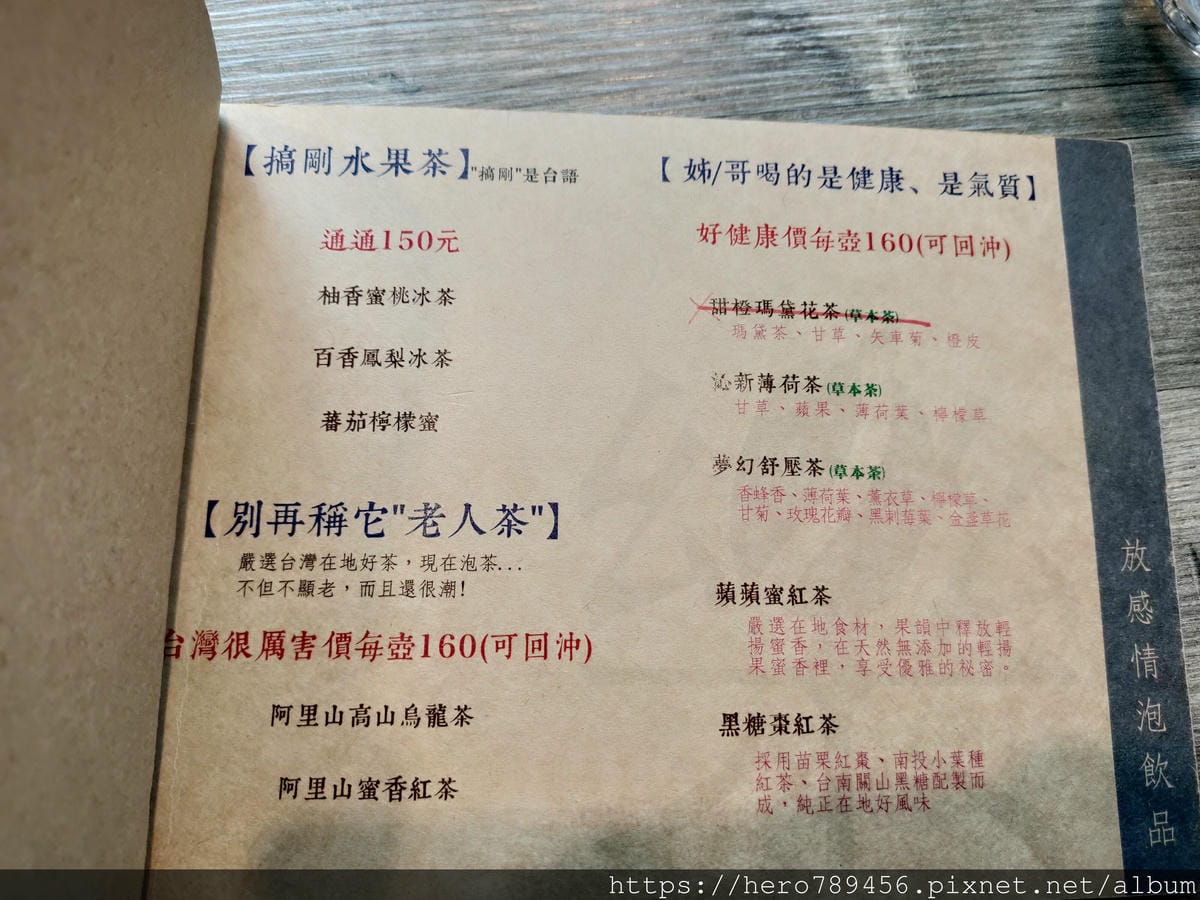 【搞剛水果茶】"搞剛"是台語
通通150元
柚香蜜桃冰茶
百香鳳梨冰茶
蕃茄檸檬蜜
【別再稱它"老人茶"】
嚴選台灣在地好茶，現在泡茶...
不但不顯老，而且還很潮!
台灣很厲害價每壺160(可回沖)
阿里山高山烏龍茶
阿里山蜜香紅茶
【姊/哥喝的是健康、是氣質】
好健康價每壺160(可回沖)
甜橙瑪黛花茶(草本茶)
瑪黛茶、甘草、矢車菊、橙皮
沁新薄荷茶(草本茶)
甘草、蘋果、薄荷葉、檸檬草
夢幻舒壓茶(草本茶)
香蜂香、薄荷葉、薰衣草、檸檬草、
甘菊、玫瑰花瓣、黑刺莓葉、金盞草花
蘋蘋蜜紅茶
嚴選在地食材，果韻中釋放輕
揚蜜香，在天然無添加的輕揚
果蜜香裡，享受優雅的秘密。
黑糖棗紅茶
採用苗栗紅棗、南投小葉種
紅茶、台南關山黑糖配製而
成，純正在地好風味
放感情泡飲品
https://hero789456.pixnet.net/album